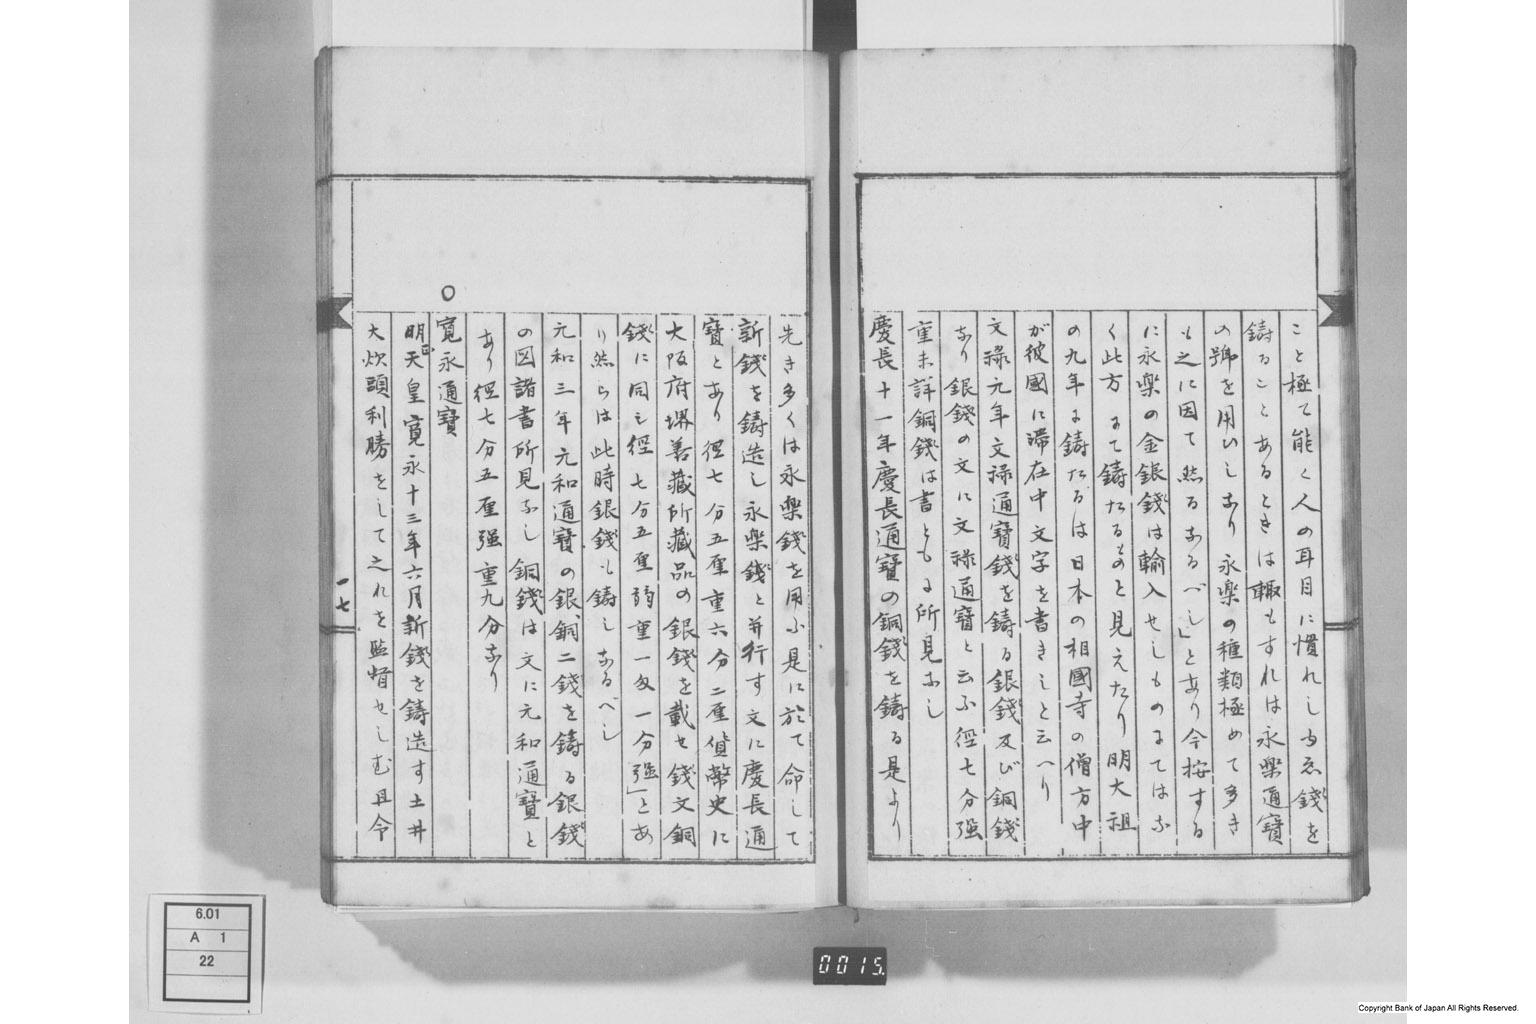 こと極て能く人の耳目に慣れし故ゑ錢を
鑄ることあるときは輙もすれは永樂通寶
の號を用ひしなり永樂の種類極めて多き
も之に因て然るなるべし」とあり今按する
に永樂の金銀錢は輸入せしものにてはな
く此方にて鑄たるものと見えたり明大祖
の九年に鑄たるは日本の相國寺の僧方中
が彼國に滞在中文字を書きしと云へり
文祿元年文祿通寶錢を鑄る銀錢及び銅錢
なり銀錢の文に文祿通寶と云ふ徑七分强
重未詳銅錢は書ともに所見なし
慶長十一年慶長通寶の銅錢を鑄る是より
先き多くは永樂錢を用ふ是に於て命して
新錢を鑄造し永樂錢と并行す文に慶長通
寶とあり徑七分五厘重六分二厘貨幣史に
大阪府堺善藏所藏品の銀錢を載せ錢文銅
錢に同し徑七分五厘弱重一匁一分强」とあ
り然らは此時銀錢も鑄しなるべし
元和三年元和通寶の銀銅二錢を鑄る銀錢
の図諸書所見なし銅錢は文に元和通寶と
あり徑七分五厘强重九分なり
○
寛永通寶
明正天皇寛永十三年六月新錢を鑄造す土井
大炊頭利勝をして之れを監督せしむ且令
一七
6.01
A 1
22
0015
Copyright Bank of Japan All Rights Reserved.